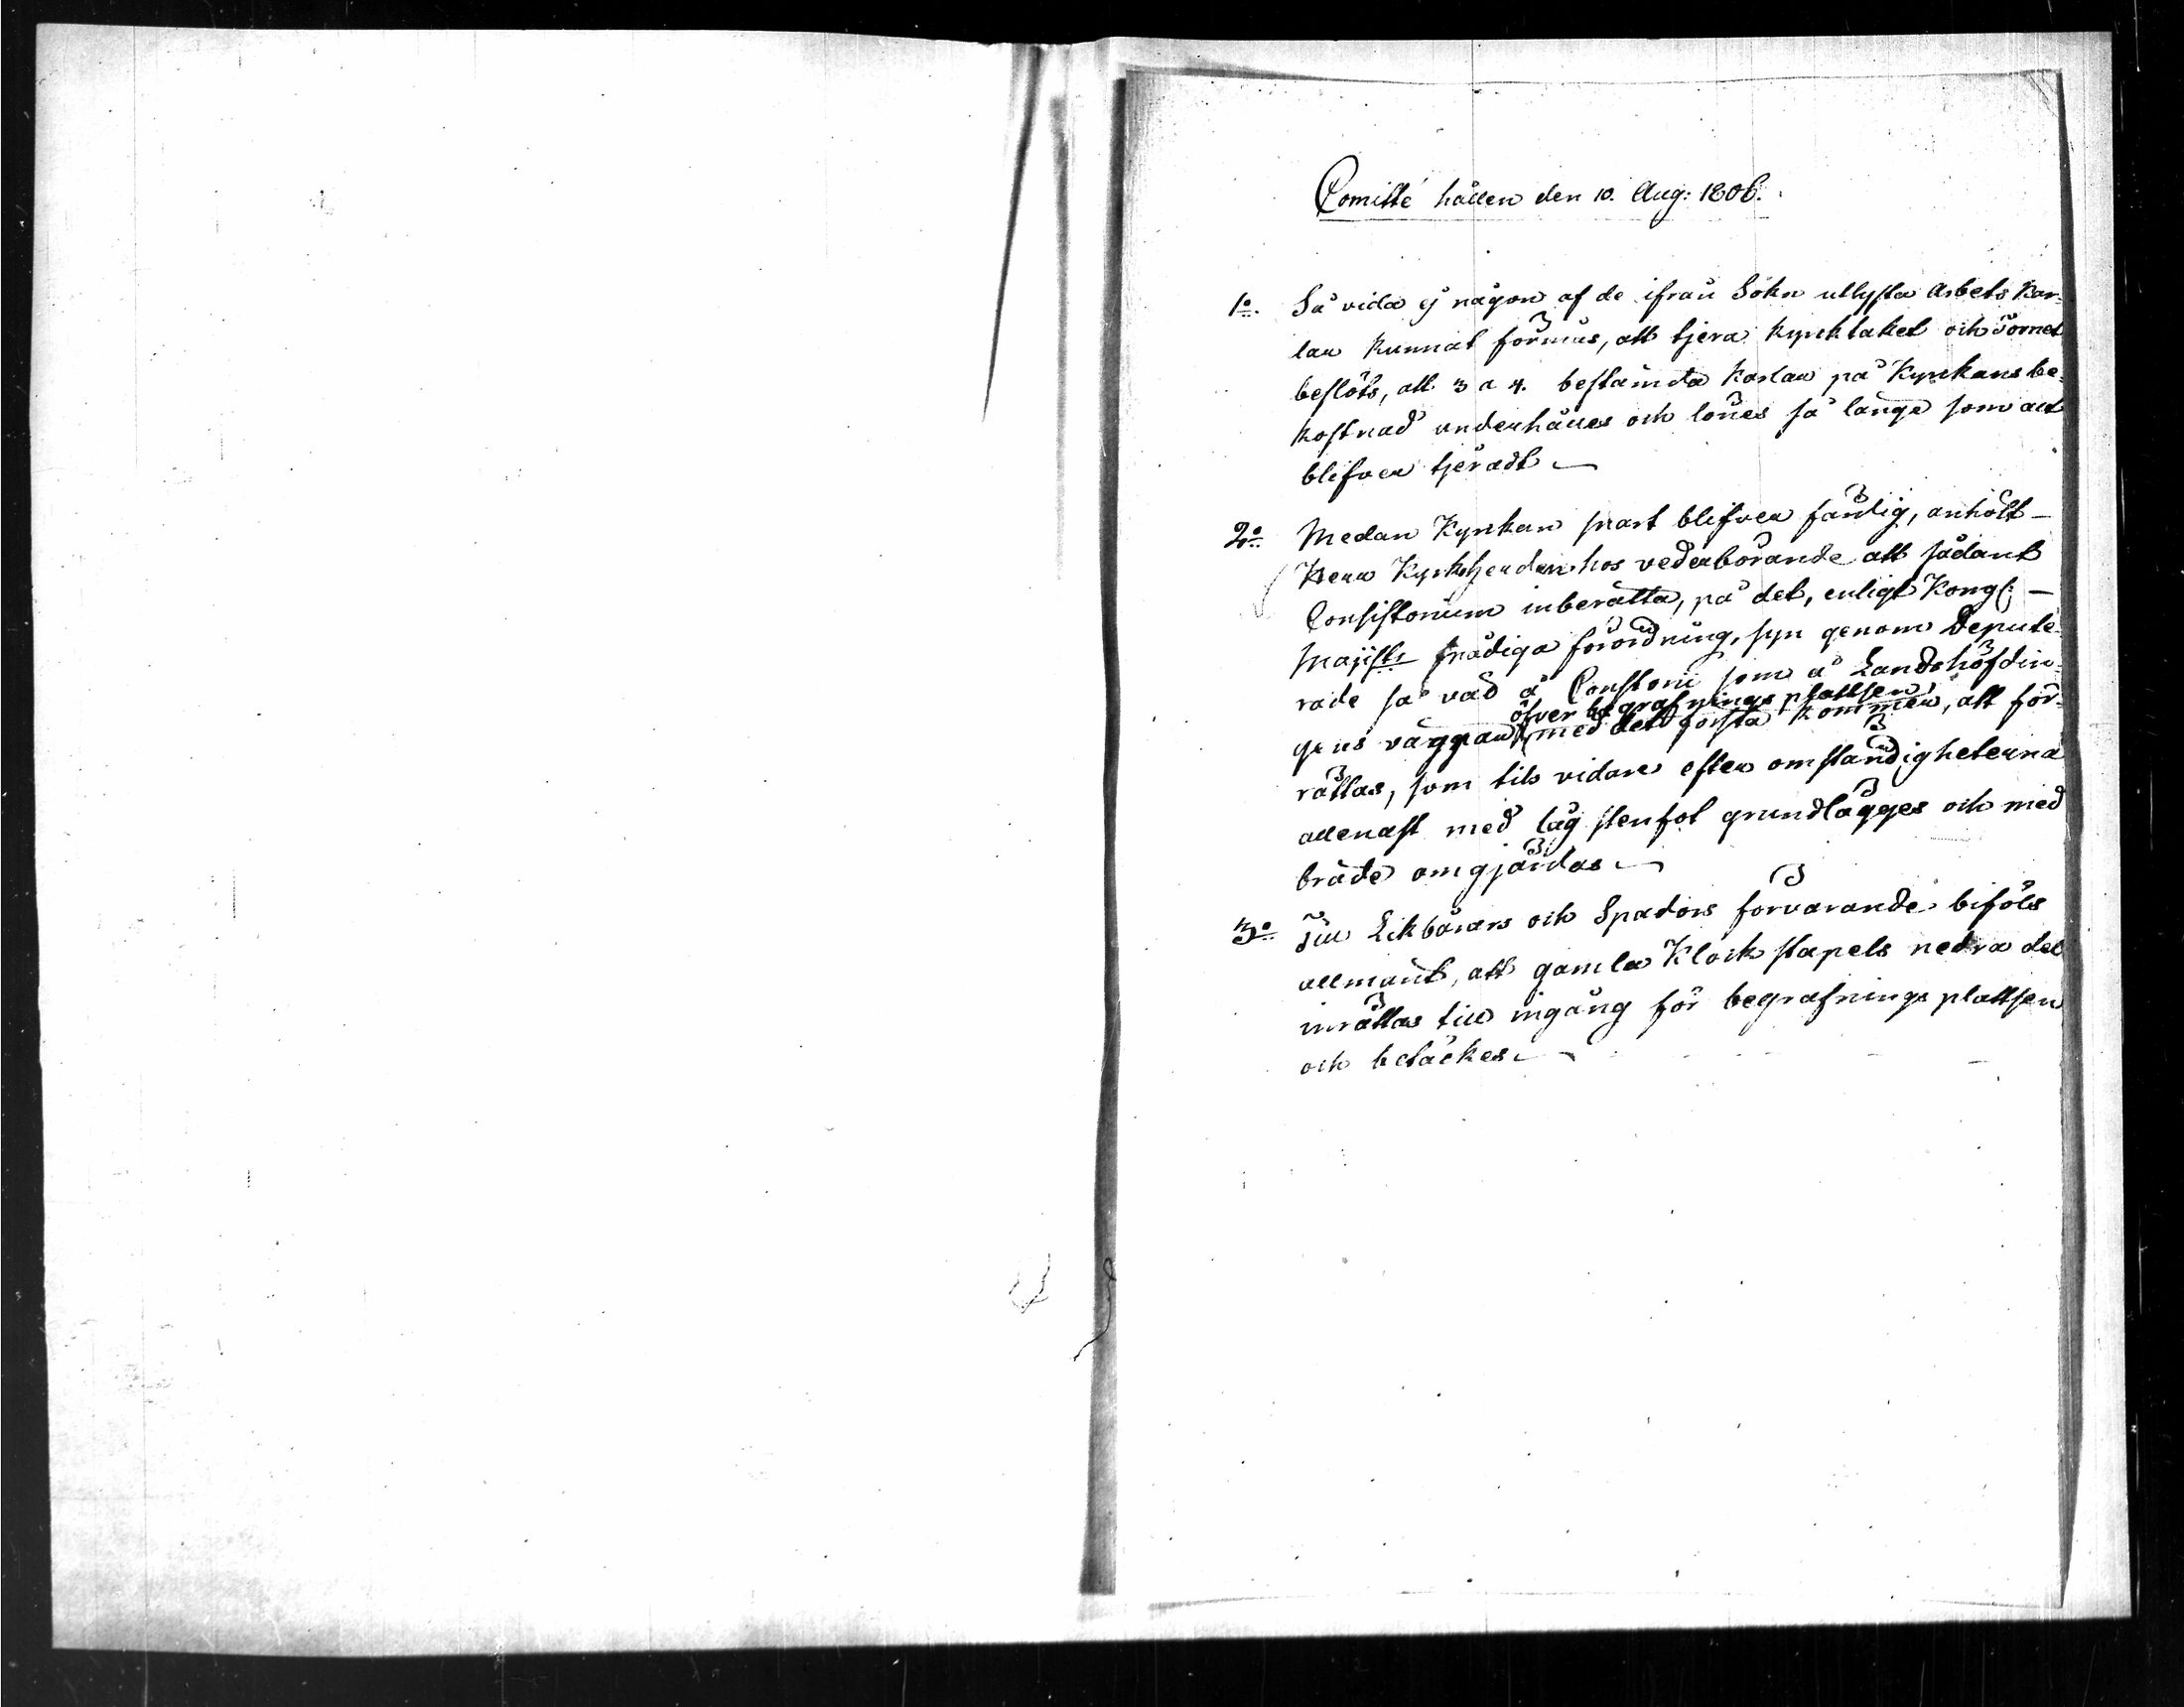 Comitté hållen den 10. Aug: 1806.
1o. Så vida ej någon af de ifrån Sokn utlysta Arbets Kar-
lar kunnat förmås, att tjera Kyrktaket och Tornet
beslöts, att 3 a 4. bestämda Karlar på Kyrkans be-
kostnad underhålles och lönes så länge som alt
blifver tjeradt
2o Medan Kyrkan snart blifver färdig, anhölt
Herr Kyrkoherden hos vederbörande att sådant
Consistorium inberätta, på det, enligt Kongl:
Majists nådiga förordning, syn genom Depute-
rade så väd å Constorii som å Landshöfdin-
gens väggnar
öfver begrafnings plattsen
med det forsta kommer, att för-
rättas, som tils vidare efter omständigheterna
allenast med låg stenfot grundlägges och med
bräde omgjärdas
3o Till Likbårars och Spadors forvarande biföls
allmänt, att gamla Klock stapels nedra del
inrättas till ingång för begrafnings plattsen
och betäckes